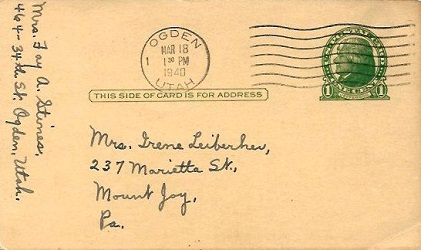 Mrs. Fay A. Stines,
464-34th St. Ogden, Utah.
OGDEN
MAR 18
1 30 PM
1940
UTAH
1
1 1
THIS SIDE OF CARD IS FOR ADDRESS
Mrs. Irene Leiberher,
237 Marietta St.,
Mount Joy,
Pa.